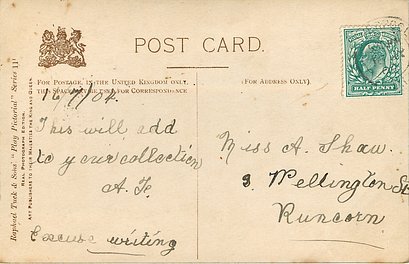 POST CARD.
FOR POSTAGE IN THE UNITED KINGDOM ONLY,
THIS SPACE MAY BE USED FOR CORRESPONDENCE
(FOR ADDRESS ONLY).
HALF PENNY
Raphael Tuck & Sons' "Play Pictorial" Series 111
REAL PHOTOGRAPH EDITION.
ART PUBLISHERS TO THEIR MAJESTIES THE KING AND QUEEN.
16/7/04.
This will add
to your collection
Excuse writing
Miss A. Shaw.
3 Wellington St
Runcorn